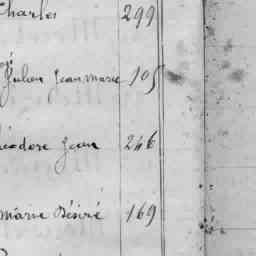 Charles 299
Julien Jean marie 105
éodore Jean 246
marie Désiré 169